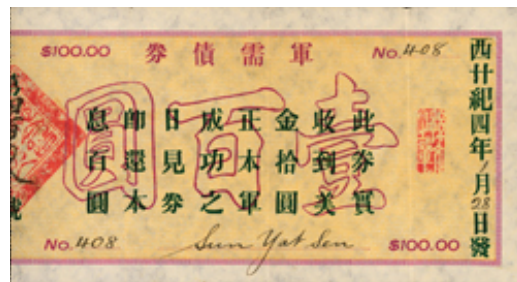 $100.00
軍需債券
No. 408
西廿紀四年1月28日發
壹百圓
此券實
收到美
金拾圓
正本軍
成功之
日見券
即還本
息百圓
號
No. 408
Sun Yat Sen
$100.00